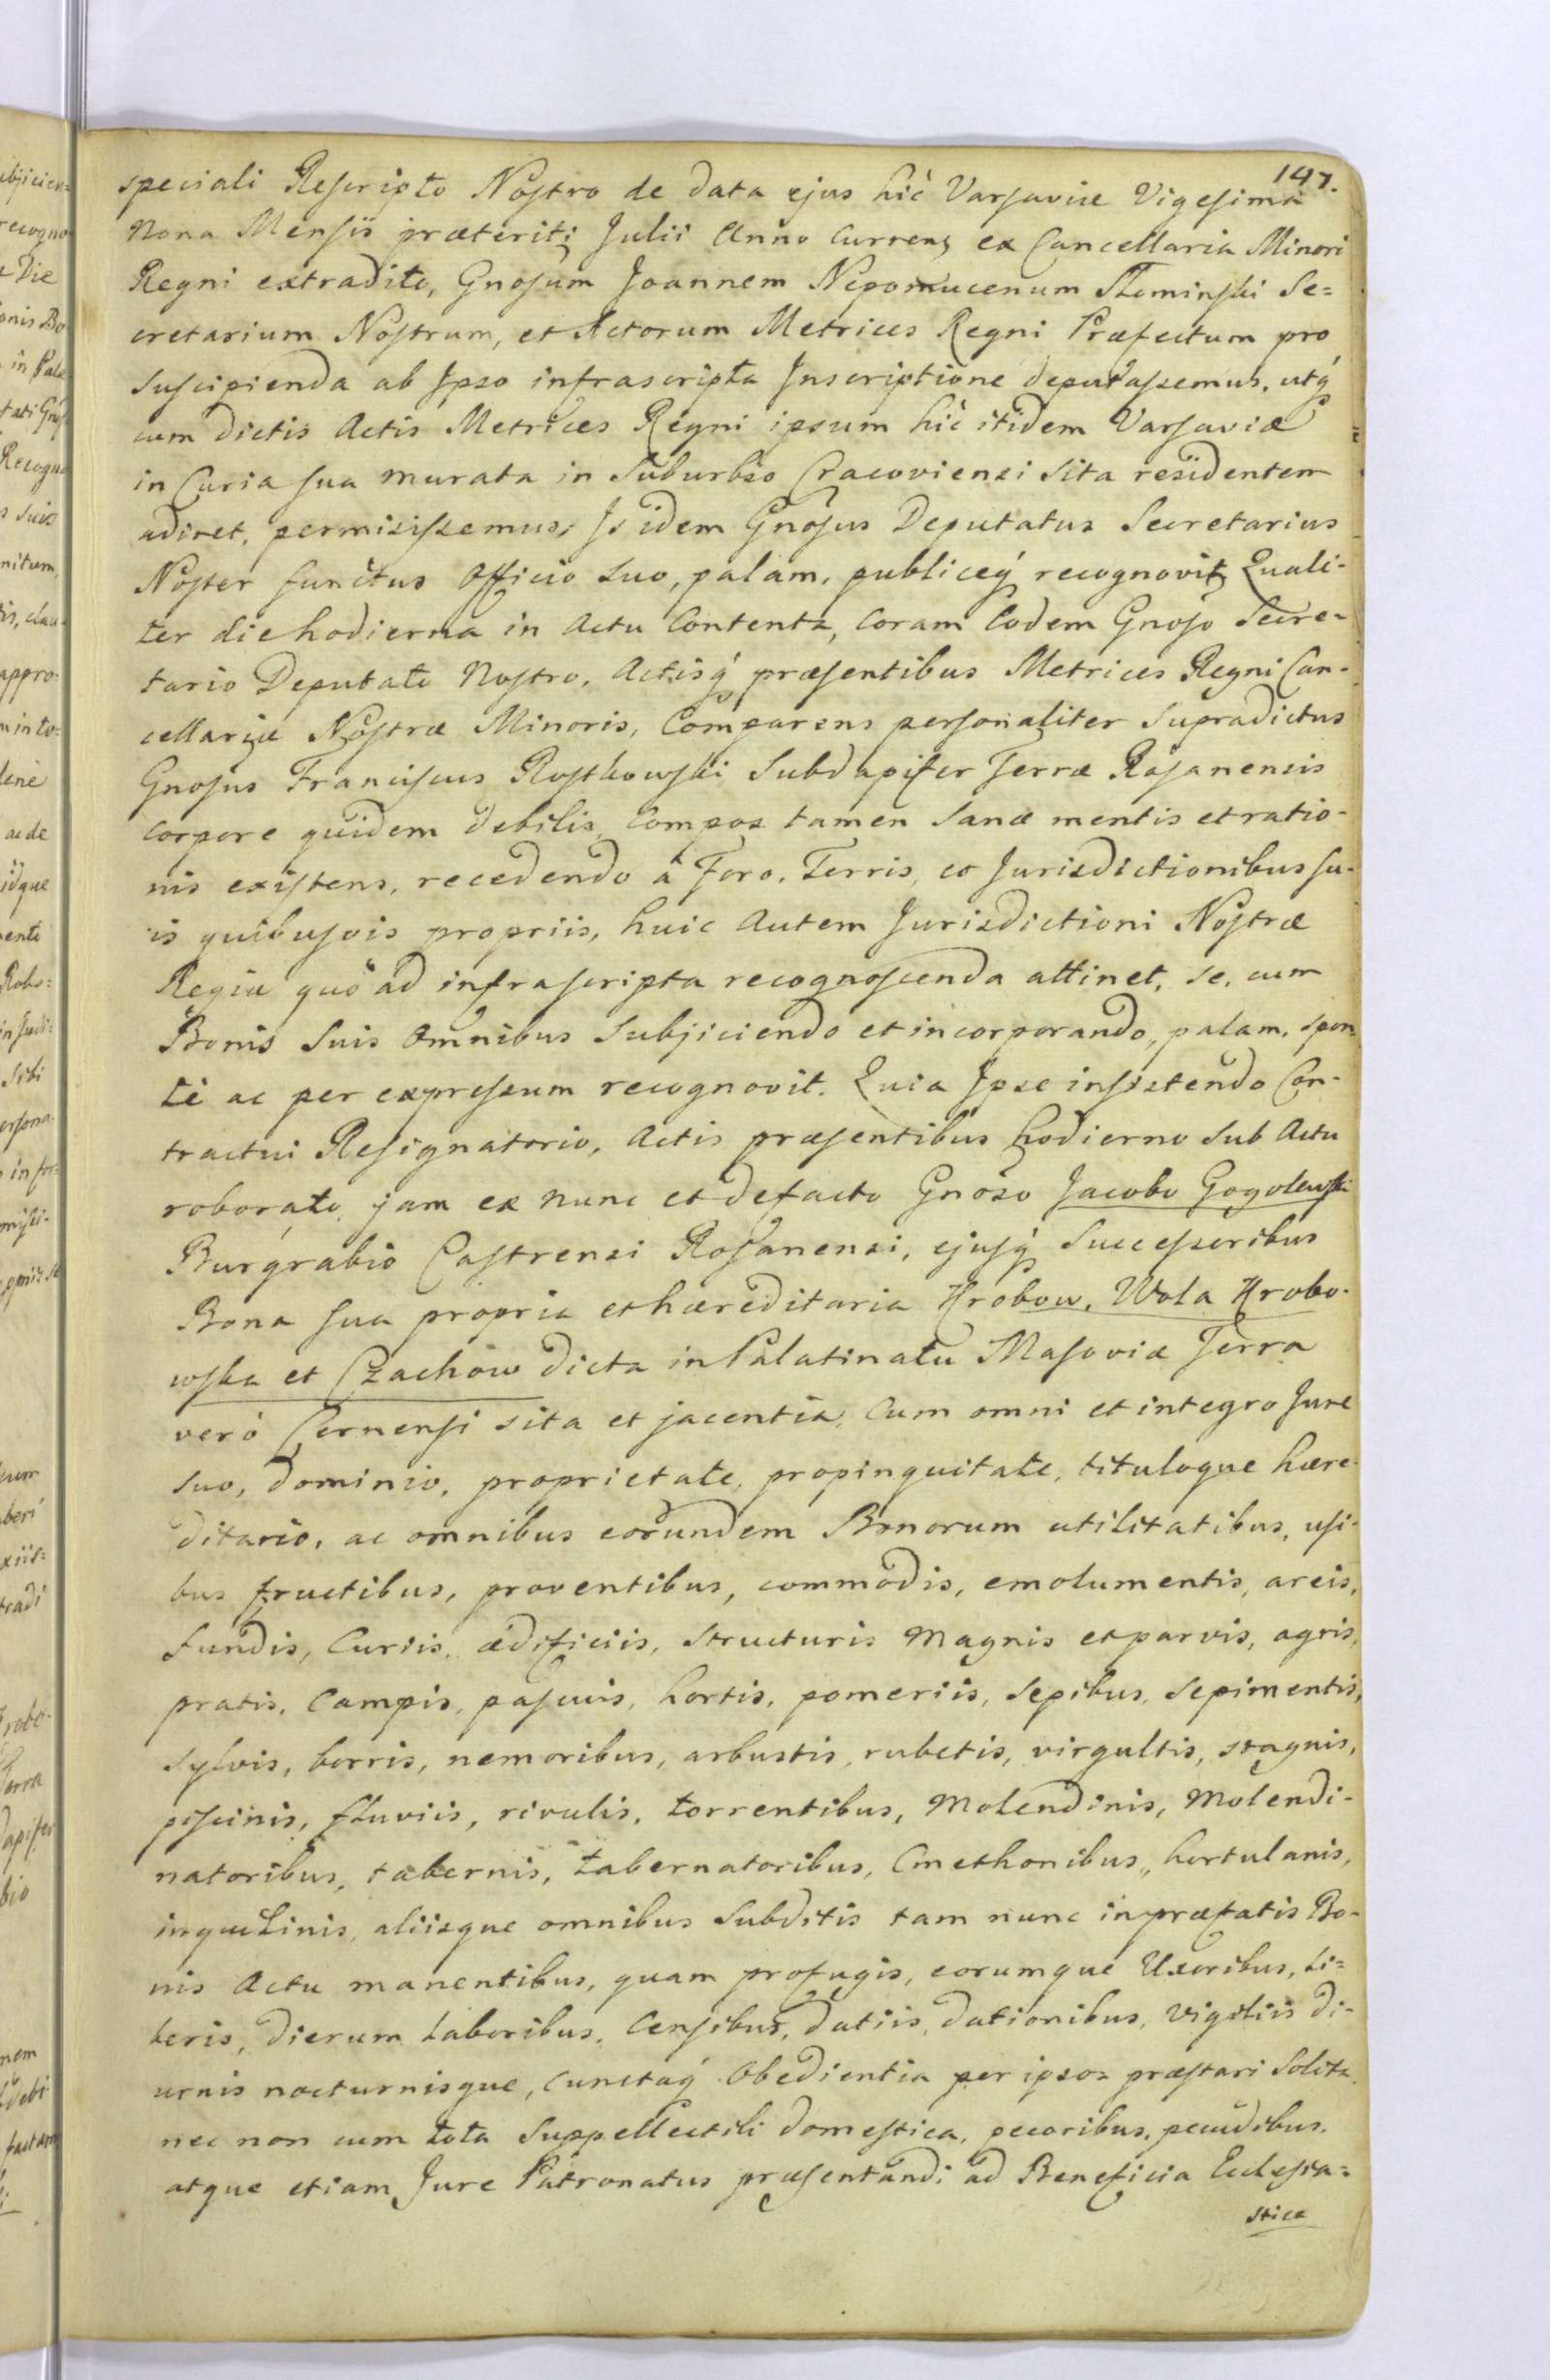 147.
speciali Rescripto Nostro de data ejus hic Varsaviæ Vigesima
Nona Mensis præteriti Julii Anno Currens ex Cancellaria Minori
Regni extradito, Gnosum Joannem Nepomucenum Słominski Se=
cretarium Nostrum, et Actorum Metrices Regni Præfectum pro
suscipienda ab Ipso infrascripta Inscriptione deputassemus, utq́
cum dictis Actis Metrices Regni ipsum hic itidem Varsaviæ
in Curia sua murata in Suburbio Cracoviensi sita residentem
adiret, permisissemus, Is idem Gnosus Deputatus Secretarius
Noster functus Officio suo, palam, publiceq́ recognovit Quali-
ter die hodierna in Actu Contenta, Coram Eodem Gnoso Secre-
tario Deputato Nostro, Actisq́ præsentibus Metrices Regni Can-
cellariæ Nostræ Minoris, Comparens personaliter Supradictus
Gnosus Franciscus Rostkowski Subdapifer Terræ Rosanensis
Corpore quidem debilis, Compos tamen Sanæ mentis et ratio-
nis existens, recedendo à Foro, Terris, eo Jurisdictionibus su-
is quibusvis propriis, huic Autem Jurisdictioni Nostræ
Regiæ quo ad infrascripta recognoscenda attinet, se, cum
Bonis Suis Omnibus Subjiciendo et incorporando, palam, spon
te ac per expressum recognovit. Quia Ipse insistendo Con-
tractui Resignatorio, Actis præsentibus hodierno sub Actu
roborato, jam ex nunc et defacto Gnoso Jacobo Gogolewski
Burgrabio Castrensi Rosanensi, ejusq́ Successoribus
Bona sua propria et hæreditaria Hrobow, Wola Hrobo-
wska et Czachow dicta in Palatinatu Masoviæ Terra
verò Cernensi sita et jacentia, Cum omni et integro Jure
suo, dominio, proprietate, propinquitate, tituloque hære-
ditario, ac omnibus eorundem Bonorum utilitatibus, usi-
bus fructibus, proventibus, commodis, emolumentis, areis,
fundis, Curiis, ædificiis, structuris Magnis et parvis, agris,
pratis, Campis, pascuis, hortis, pomeriis, sepibus, sepimentis,
sylvis, borris, nemoribus, arbustis, rubetis, virgultis, stagnis,
piscinis, fluviis, rivulis, torrentibus, Molendinis, Molendi-
natoribus, tabernis, tabernatoribus, Cmethonibus, hortulanis,
inquilinis, aliisque omnibus Subditis tam nunc in præfatis Bo-
nis Actu manentibus, quam profugis, eorumque Uxoribus, Li=
beris, dierum Laboribus, Censibus, datiis, dationibus, Vigiliis di-
urnis nocturnisque, cunctaq́ Obedientia per ipsos præstari Solita,
nec non cum tota Suppellectili domestica, pecoribus, pecudibus,
atque etiam Jure Patronatus præsentandi ad Beneficia Ecclesia=
stica